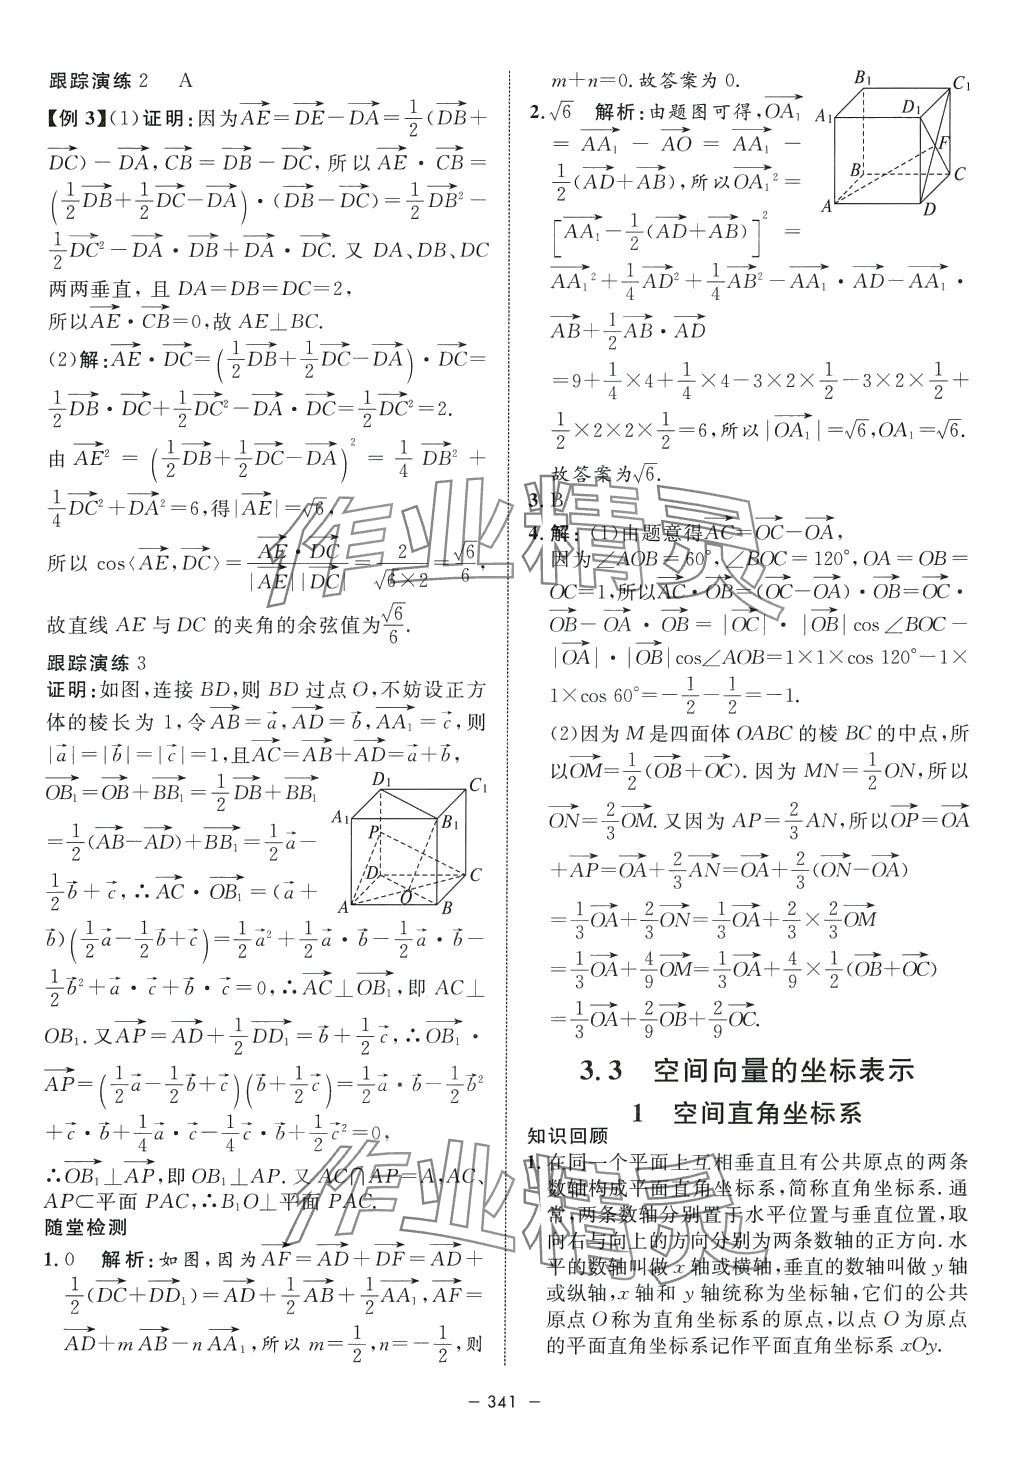 跟踪演练2 A
【例3】(1)证明:因为$\overrightarrow{AE}=\overrightarrow{DE}-\overrightarrow{DA}=\frac{1}{2}(\overrightarrow{DB}+$
$\overrightarrow{DC})-\overrightarrow{DA},\overrightarrow{CB}=\overrightarrow{DB}-\overrightarrow{DC}$,所以$\overrightarrow{AE}\cdot\overrightarrow{CB}=$
$\left(\frac{1}{2}\overrightarrow{DB}+\frac{1}{2}\overrightarrow{DC}-\overrightarrow{DA}\right)\cdot(\overrightarrow{DB}-\overrightarrow{DC})=\frac{1}{2}\overrightarrow{DB}^2-$
$\frac{1}{2}\overrightarrow{DC}^2-\overrightarrow{DA}\cdot\overrightarrow{DB}+\overrightarrow{DA}\cdot\overrightarrow{DC}$.又DA、DB、DC
两两垂直,且DA=DB=DC=2,
所以$\overrightarrow{AE}\cdot\overrightarrow{CB}=0$,故AE⊥BC.
(2)解:$\overrightarrow{AE}\cdot\overrightarrow{DC}=\left(\frac{1}{2}\overrightarrow{DB}+\frac{1}{2}\overrightarrow{DC}-\overrightarrow{DA}\right)\cdot\overrightarrow{DC}=$
$\frac{1}{2}\overrightarrow{DB}\cdot\overrightarrow{DC}+\frac{1}{2}\overrightarrow{DC}^2-\overrightarrow{DA}\cdot\overrightarrow{DC}=\frac{1}{2}\overrightarrow{DC}^2=2.$
由$\overrightarrow{AE}^2=\left(\frac{1}{2}\overrightarrow{DB}+\frac{1}{2}\overrightarrow{DC}-\overrightarrow{DA}\right)^2=\frac{1}{4}\overrightarrow{DB}^2+$
$\frac{1}{4}\overrightarrow{DC}^2+\overrightarrow{DA}^2=6$,得$|\overrightarrow{AE}|=\sqrt{6}$,
所以$\cos\langle\overrightarrow{AE},\overrightarrow{DC}\rangle=\frac{\overrightarrow{AE}\cdot\overrightarrow{DC}}{|\overrightarrow{AE}||\overrightarrow{DC}|}=\frac{2}{\sqrt{6}\times2}=\frac{\sqrt{6}}{6}$,
故直线AE与DC的夹角的余弦值为$\frac{\sqrt{6}}{6}$.
跟踪演练3
证明:如图,连接BD,则BD过点O,不妨设正方
体的棱长为1,令$\overrightarrow{AB}=\vec{a},\overrightarrow{AD}=\vec{b},\overrightarrow{AA_1}=\vec{c}$,则
$|\vec{a}|=|\vec{b}|=|\vec{c}|=1$,且$\overrightarrow{AC}=\overrightarrow{AB}+\overrightarrow{AD}=\vec{a}+\vec{b}$,
$\overrightarrow{OB_1}=\overrightarrow{OB}+\overrightarrow{BB_1}=\frac{1}{2}\overrightarrow{DB}+\overrightarrow{BB_1}$
$=\frac{1}{2}(\overrightarrow{AB}-\overrightarrow{AD})+\overrightarrow{BB_1}=\frac{1}{2}\vec{a}-$
$\frac{1}{2}\vec{b}+\vec{c}$,∴$\overrightarrow{AC}\cdot\overrightarrow{OB_1}=(\vec{a}+$
D₁ C₁ A₁ B₁ P D C O A B
$\vec{b})\left(\frac{1}{2}\vec{a}-\frac{1}{2}\vec{b}+\vec{c}\right)=\frac{1}{2}\vec{a}^2+\frac{1}{2}\vec{a}\cdot\vec{b}-\frac{1}{2}\vec{a}\cdot\vec{b}-$
$\frac{1}{2}\vec{b}^2+\vec{a}\cdot\vec{c}+\vec{b}\cdot\vec{c}=0$,∴$\overrightarrow{AC}\perp\overrightarrow{OB_1}$,即AC⊥
OB₁.又$\overrightarrow{AP}=\overrightarrow{AD}+\frac{1}{2}\overrightarrow{DD_1}=\vec{b}+\frac{1}{2}\vec{c}$,∴$\overrightarrow{OB_1}\cdot$
$\overrightarrow{AP}=\left(\frac{1}{2}\vec{a}-\frac{1}{2}\vec{b}+\vec{c}\right)\left(\vec{b}+\frac{1}{2}\vec{c}\right)=\frac{1}{2}\vec{a}\cdot\vec{b}-\frac{1}{2}\vec{b}^2$
$+\vec{c}\cdot\vec{b}+\frac{1}{4}\vec{a}\cdot\vec{c}-\frac{1}{4}\vec{c}\cdot\vec{b}+\frac{1}{2}\vec{c}^2=0$,
∴$\overrightarrow{OB_1}\perp\overrightarrow{AP}$,即OB₁⊥AP.又AC∩AP=A,AC、
AP⊂平面PAC,∴B₁O⊥平面PAC.
随堂检测
1.0 解析:如图,因为$\overrightarrow{AF}=\overrightarrow{AD}+\overrightarrow{DF}=\overrightarrow{AD}+$
$\frac{1}{2}(\overrightarrow{DC}+\overrightarrow{DD_1})=\overrightarrow{AD}+\frac{1}{2}\overrightarrow{AB}+\frac{1}{2}\overrightarrow{AA_1},\overrightarrow{AF}=$
$\overrightarrow{AD}+m\overrightarrow{AB}-n\overrightarrow{AA_1}$,所以$m=\frac{1}{2},n=-\frac{1}{2}$,则
m+n=0.故答案为0.
2.$\sqrt{6}$ 解析:由题图可得,$\overrightarrow{OA_1}$
$=\overrightarrow{AA_1}-\overrightarrow{AO}=\overrightarrow{AA_1}-$
$\frac{1}{2}(\overrightarrow{AD}+\overrightarrow{AB})$,所以$\overrightarrow{OA_1}^2=$
B₁ C₁ A₁ D₁ F B C A D
$\left[\overrightarrow{AA_1}-\frac{1}{2}(\overrightarrow{AD}+\overrightarrow{AB})\right]^2=$
$\overrightarrow{AA_1}^2+\frac{1}{4}\overrightarrow{AD}^2+\frac{1}{4}\overrightarrow{AB}^2-\overrightarrow{AA_1}\cdot\overrightarrow{AD}-\overrightarrow{AA_1}\cdot$
$\overrightarrow{AB}+\frac{1}{2}\overrightarrow{AB}\cdot\overrightarrow{AD}$
$=9+\frac{1}{4}\times4+\frac{1}{4}\times4-3\times2\times\frac{1}{2}-3\times2\times\frac{1}{2}+$
$\frac{1}{2}\times2\times2\times\frac{1}{2}=6$,所以$|\overrightarrow{OA_1}|=\sqrt{6},OA_1=\sqrt{6}.$
故答案为$\sqrt{6}$.
3.B
4.解:(1)由题意得$\overrightarrow{AC}=\overrightarrow{OC}-\overrightarrow{OA}$,
因为∠AOB=60°,∠BOC=120°,OA=OB=
OC=1,所以$\overrightarrow{AC}\cdot\overrightarrow{OB}=(\overrightarrow{OC}-\overrightarrow{OA})\cdot\overrightarrow{OB}=\overrightarrow{OC}\cdot$
$\overrightarrow{OB}-\overrightarrow{OA}\cdot\overrightarrow{OB}=|\overrightarrow{OC}|\cdot|\overrightarrow{OB}|\cos\angle BOC-$
$|\overrightarrow{OA}|\cdot|\overrightarrow{OB}|\cos\angle AOB=1\times1\times\cos120°-1\times$
$1\times\cos60°=-\frac{1}{2}-\frac{1}{2}=-1.$
(2)因为M是四面体OABC的棱BC的中点,所
以$\overrightarrow{OM}=\frac{1}{2}(\overrightarrow{OB}+\overrightarrow{OC})$.因为$MN=\frac{1}{2}ON$,所以
$\overrightarrow{ON}=\frac{2}{3}\overrightarrow{OM}$.又因为$AP=\frac{2}{3}AN$,所以$\overrightarrow{OP}=\overrightarrow{OA}$
$+\overrightarrow{AP}=\overrightarrow{OA}+\frac{2}{3}\overrightarrow{AN}=\overrightarrow{OA}+\frac{2}{3}(\overrightarrow{ON}-\overrightarrow{OA})$
$=\frac{1}{3}\overrightarrow{OA}+\frac{2}{3}\overrightarrow{ON}=\frac{1}{3}\overrightarrow{OA}+\frac{2}{3}\times\frac{2}{3}\overrightarrow{OM}$
$=\frac{1}{3}\overrightarrow{OA}+\frac{4}{9}\overrightarrow{OM}=\frac{1}{3}\overrightarrow{OA}+\frac{4}{9}\times\frac{1}{2}(\overrightarrow{OB}+\overrightarrow{OC})$
$=\frac{1}{3}\overrightarrow{OA}+\frac{2}{9}\overrightarrow{OB}+\frac{2}{9}\overrightarrow{OC}.$
3.3 空间向量的坐标表示
1 空间直角坐标系
知识回顾
1.在同一个平面上互相垂直且有公共原点的两条
数轴构成平面直角坐标系,简称直角坐标系.通
常,两条数轴分别置于水平位置与垂直位置,取
向右与向上的方向分别为两条数轴的正方向.水
平的数轴叫做x轴或横轴,垂直的数轴叫做y轴
或纵轴,x轴和y轴统称为坐标轴,它们的公共
原点O称为直角坐标系的原点,以点O为原点
的平面直角坐标系记作平面直角坐标系xOy.
作业精灵
作业精灵
- 341 -